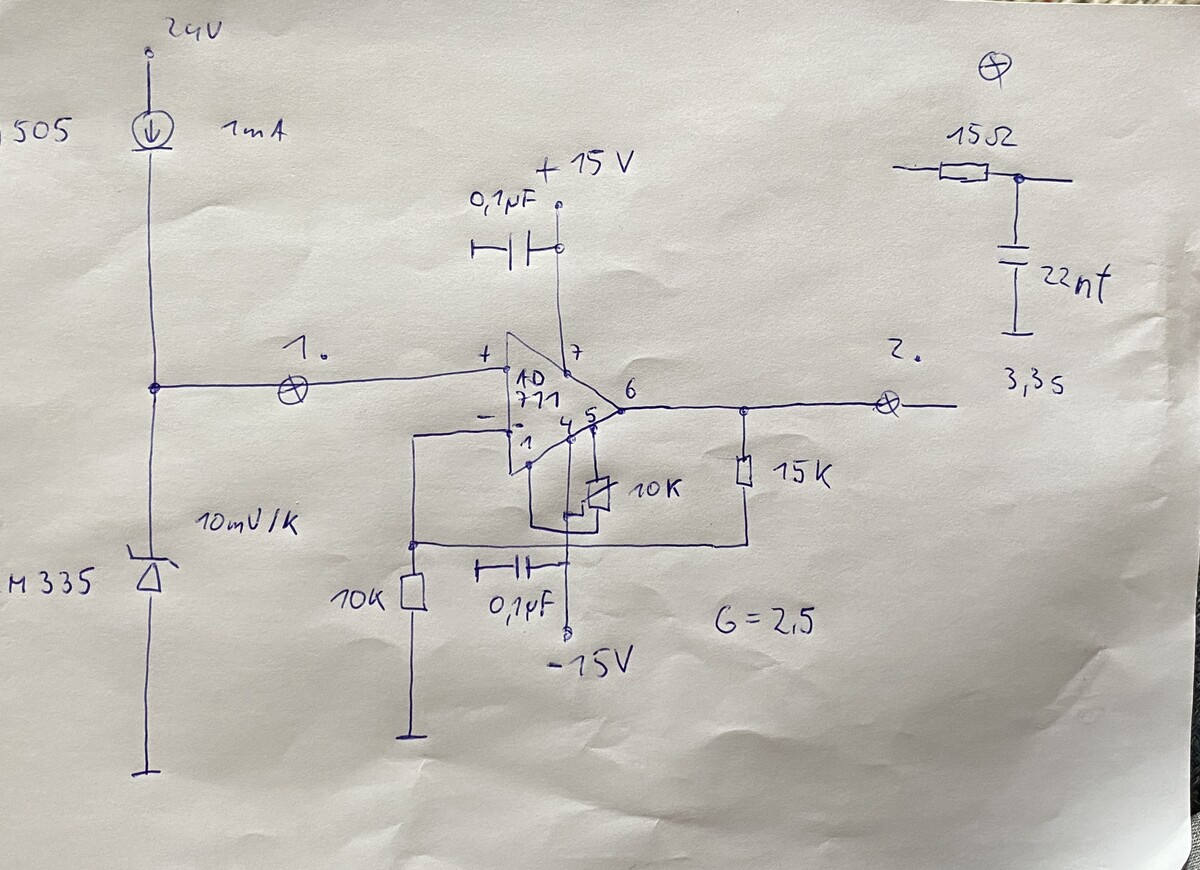 24V
505
1mA
+ 15 V
0,1µF
15Ω
22nf
3,3s
1.
2.
+
7
AD
711
6
-
-
1
4
5
10K
15K
10mV/K
M 335
10K
0,1µF
G = 2,5
-15V